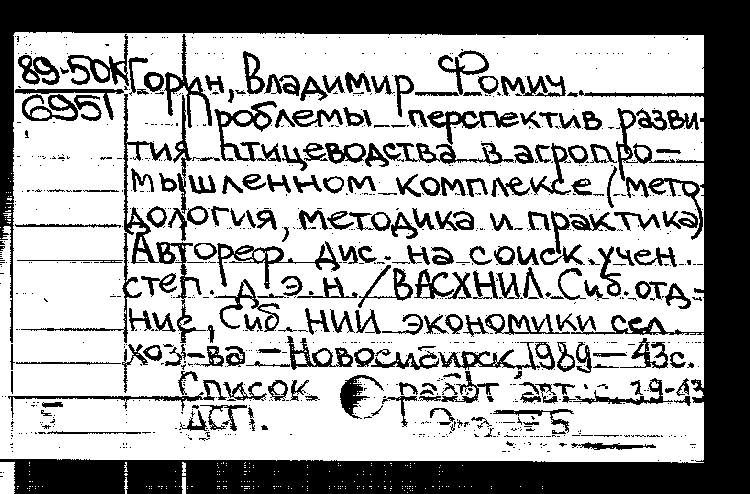 89-50К Горин, Владимир Фомич.
6951 Проблемы перспектив разви-
тия птицеводства в агропро-
мышленном комплексе (мето-
дология, методика и практика)
Автореф. дис. на соиск. учен.
степ. д. э. н. / ВАСХНИЛ. Сиб. отд-
ние, Сиб. НИИ экономики сел.
хоз-ва. — Новосибирск, 1989 — 43с.
Список работ авт.: с. 39-43
5 ДСП.